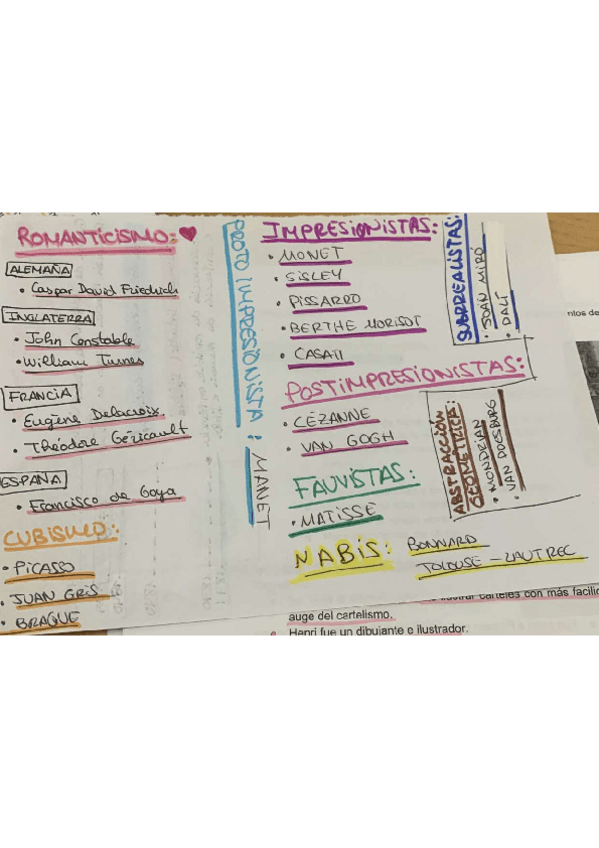 ROMANTICISMO:
ALEMAÑA
• Caspar David Friedrich
INGLATERRA
• John Constable
• William Turnes
FRANCIA
• Eugène Delacroix.
• Théodore Géricault
ESPAÑA
• Francisco de Goya
CUBISMO:
• PICASSO
• JUAN GRIS
• BRAQUE
PROTO IMPRESIONISTA: MANET
IMPRESIONISTAS:
• MONET
• SISLEY
• PISSARRO
• BERTHE MORISOT
• CASATI
POSTIMPRESIONISTAS:
• CÉZANNE
• VAN GOGH
FAUVISTAS:
• MATISSE
NABIS: BONNARD
TOLOUSE-LAUTREC
SURREALISTAS:
• JOAN MIRÓ
• DALÍ
ABSTRACCIÓN
GEOMÉTRICA:
• MONDRIAN
• VAN DOESBURG
ntos de
ilustrar carteles con más facilid
auge del cartelismo.
Henri fue un dibujante e ilustrador.